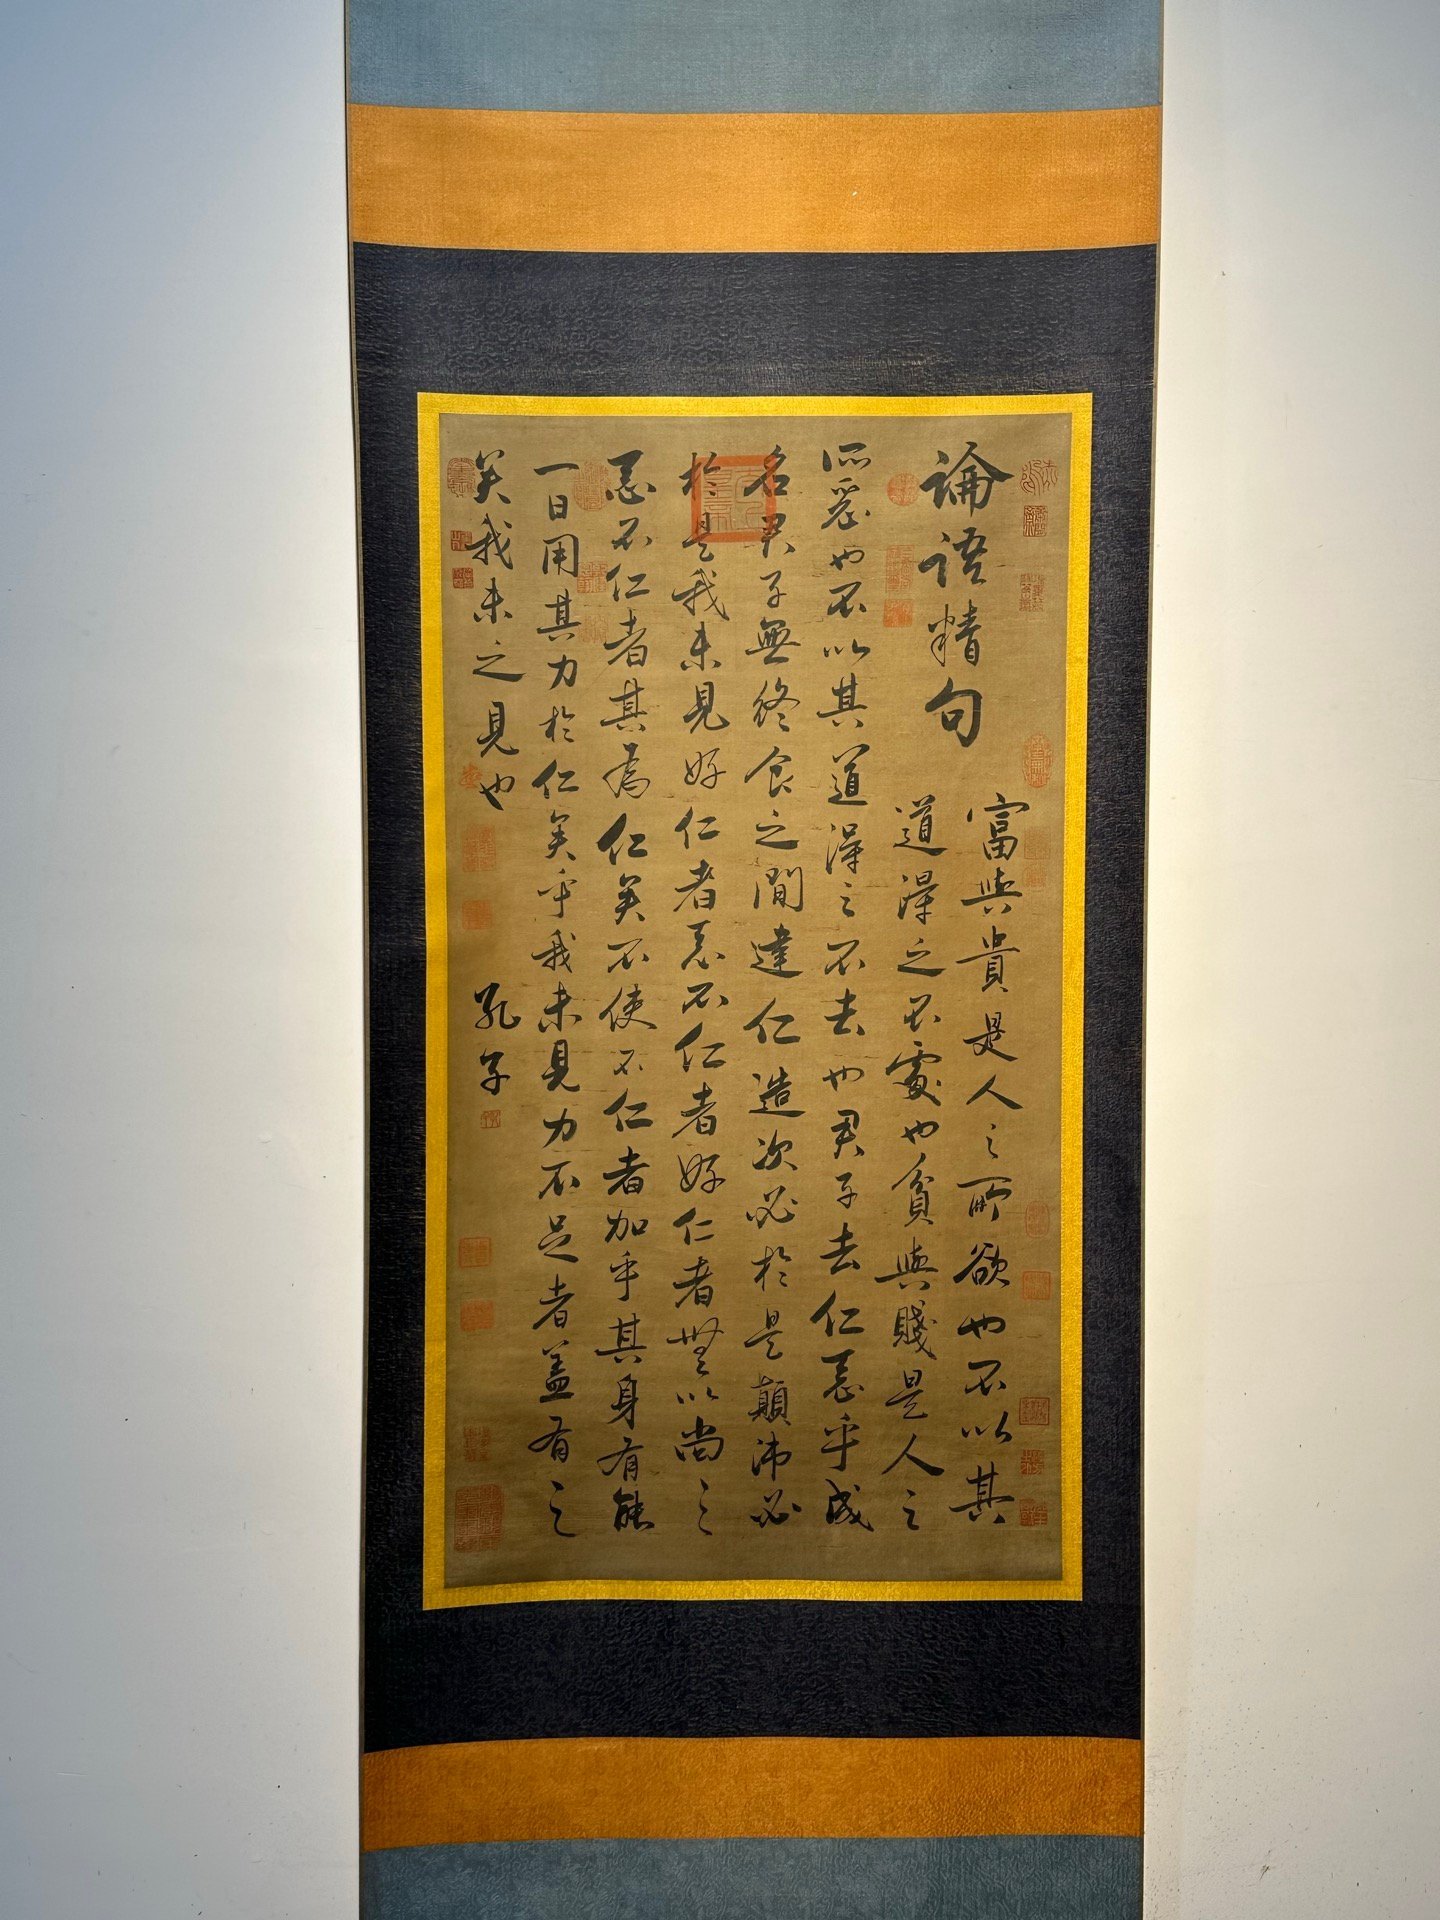 論語精句
富與貴是人之所欲也不以其
道得之不處也貧與賤是人之
所惡也不以其道得之不去也君子去仁惡乎成
名君子無終食之間違仁造次必於是顛沛必
於是我未見好仁者惡不仁者好仁者無以尚之
惡不仁者其為仁矣不使不仁者加乎其身有能
一日用其力於仁矣乎我未見力不足者盖有之
矣我未之見也 孔子